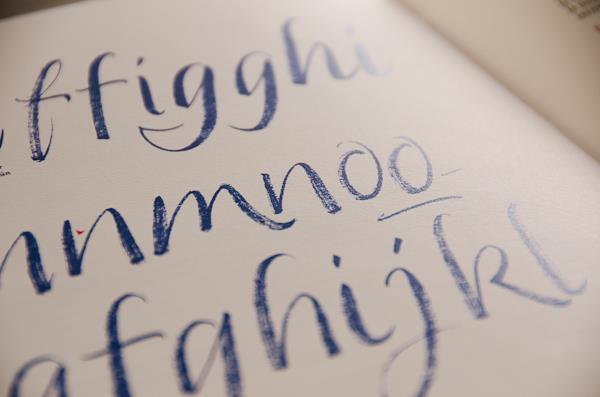 ffigghi
nnmnoo
afghijkl